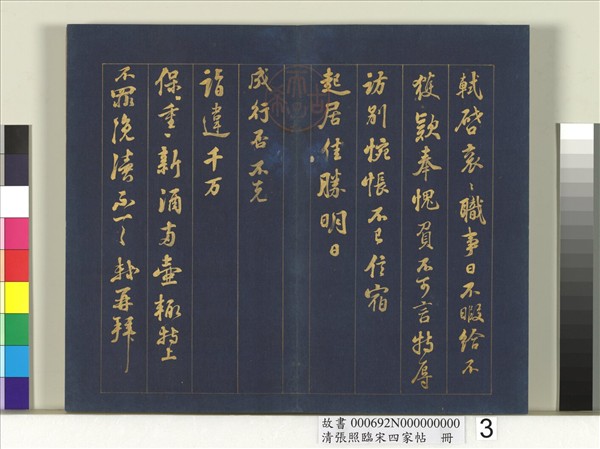 軾啓衮〻職事日不暇給不
獲欵奉愧負不可言特辱
訪別惋悵不已信宿
起居佳勝明日
成行否不克
詣違千万
保〻重〻新酒兩壺輒持上
不罪浼瀆不一〻軾再拜
故書 000692N000000000
清張照臨宋四家帖 冊
3